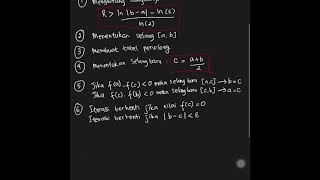 ① Menghitung
R > ln|b-a| - ln(ε) / ln(2)
② Menentukan selang [a,b]
③ Membuat tabel penolong
④ Menentukan selang baru : C = a+b / 2
⑤ Jika f(a).f(c) < 0 maka selang baru [a,c] → b = c
Jika f(c).f(b) < 0 maka selang baru [c,b] → a = c
⑥ Iterasi berhenti jika nilai f(c) = 0
Iterasi berhenti jika |b-c| < ε